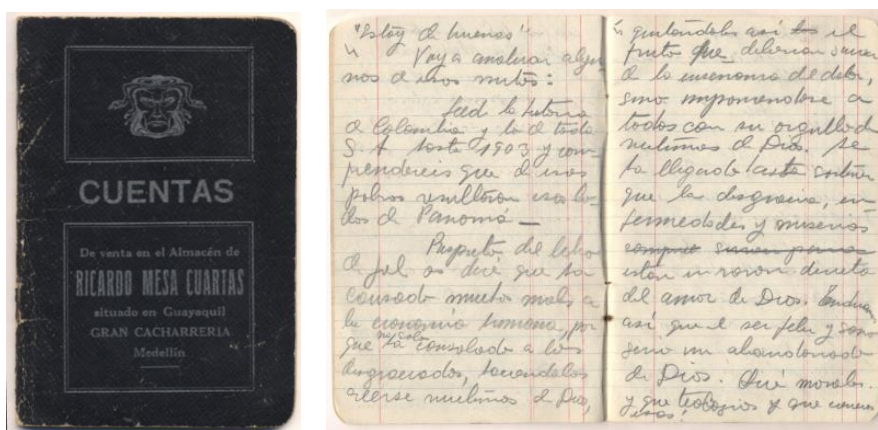 CUENTAS
De venta en el Almacén de
RICARDO MESA CUARTAS
situado en Guayaquil
GRAN CACHARRERIA
Medellín
"Estoy de buenas"
Voy a analizar algu-
nos de esos mitos:
Leed la historia
de Colombia y la de toda
S. A. hasta 1903 y com-
prendereis que de esos
polvos resultaron esos lo-
dos de Panamá —
Respecto del libro
de Job os diré que ha
causado mucho mal a
la economía humana, por
que no solo ha consolado a los
desgraciados, haciéndolos
creerse mulimos de Dios,
quitándoles así el
fruto que deberían sacar
de la ensenansa del dolor,
sino imponiendose a
todos con su orgullo de
mulimos de Dios. Se
ha llegado hasta sostener
que la desgracia, en-
fermedades y miserias
estan en razon directa
del amor de Dios.
así que el ser feliz y sano
seria un abandonado
de Dios. Qué morales
y que teologías y que
esos!